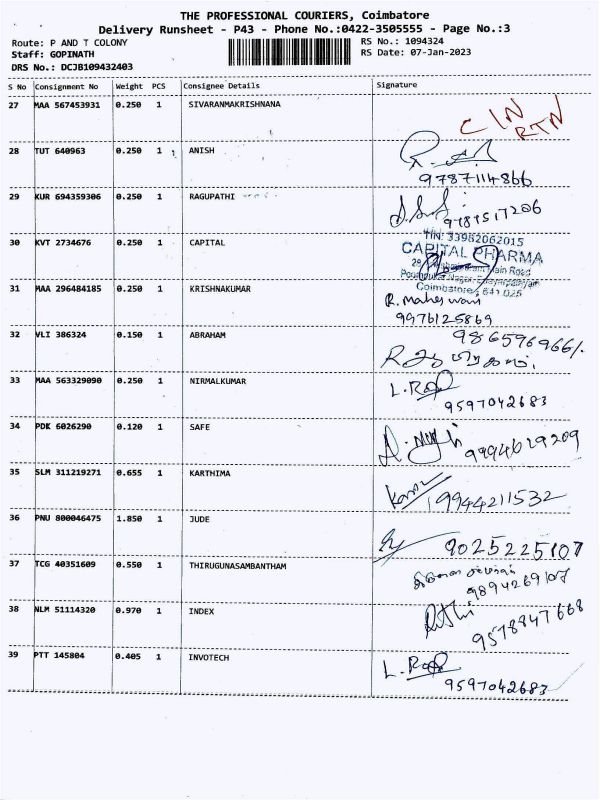 THE PROFESSIONAL COURIERS, Coimbatore
Delivery Runsheet - P43 - Phone No.:0422-3505555 - Page No.:3
Route: P AND T COLONY RS No.: 1094324
Staff: GOPINATH RS Date: 07-Jan-2023
DRS No.: DCJB109432403
S No Consignment No Weight PCS Consignee Details Signature
27 MAA 567453931 0.250 1 SIVARANMAKRISHNANA
CIN
RTN
28 TUT 640963 0.250 1 ANISH
9787114866
29 KUR 694359306 0.250 1 RAGUPATHI
9787517206
30 KVT 2734676 0.250 1 CAPITAL
TIN: 33962062015
CAPITAL PHARMA
Main Road
Coimbatore - 641 025
31 MAA 296484185 0.250 1 KRISHNAKUMAR
R. maheswari
9976125869
32 VLI 386324 0.150 1 ABRAHAM
9865796966/.
33 MAA 563329090 0.250 1 NIRMALKUMAR
9597042683
34 PDK 6026290 0.120 1 SAFE
9994629209
35 SLM 311219271 0.655 1 KARTHIMA
9944211532
36 PNU 800046475 1.850 1 JUDE
9025225107
37 TCG 40351609 0.550 1 THIRUGUNASAMBANTHAM
9894269107
38 NLM 51114320 0.970 1 INDEX
9578947668
39 PTT 145804 0.405 1 INVOTECH
9597042683